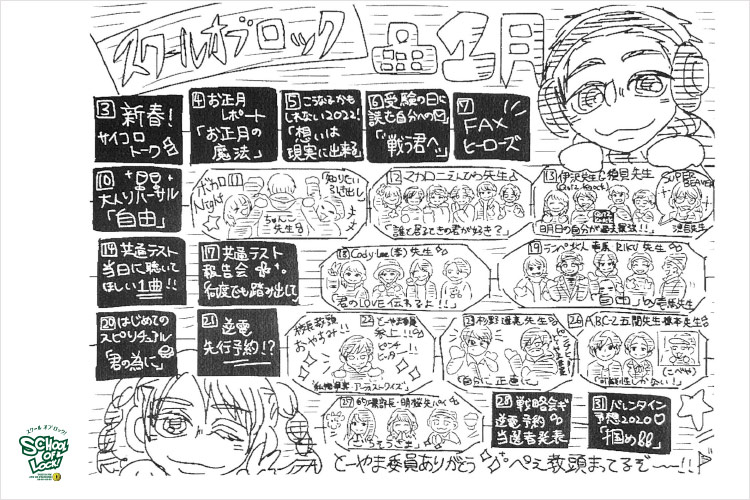 スクールオブロック
1月
3
新春!
サイコロ
トーク
4 お正月
レポート
「お正月の
魔法」
5 こうなるかも
しれない2022!
「想いは
現実に出来る」
6 受験の日に
読む自分への
「戦う君へ」
7
FAX
ヒーローズ
10
大人リハーサル
「自由」
ボカロ 11
Night
ちゃんこ
先生
知りたい
引き出し
12 マカロニえんぴつ先生
「誰て君てきの君が好き?」
13 伊沢先生
須貝先生
(QuizKnock)
SUPER
BEAVER
「明日の自分が
14 共通テスト
当日に聴いて
ほしい1曲!!
17 共通テスト
報告会
「何度でも踏み出して」
18 Cody・Lee(李)先生
「君のLOVE伝わるよ!!」
19 ランペ
RIKU先生
「自由」
20 はじめての
スピリチュアル
「君の為に」
21 逆電
先行予約!?
校長教頭
おやすみ!!
22 とーやま委員
参上!!
ピンチ
ヒッター
23 杉野遥亮先生
「自分に正直に」
26 ABC-Z 五関先生・橋本先生
(こべや)
「可能性しかない!」
27
28 戦略会ギ
逆電予約
当選者発表
31 バレンタイン
予想2020
「掴め
とーやま委員ありがとう ぺえ教頭まってるぞ〜!!
スクール オブ ロック!
SCHOOL
OF
LOCK!